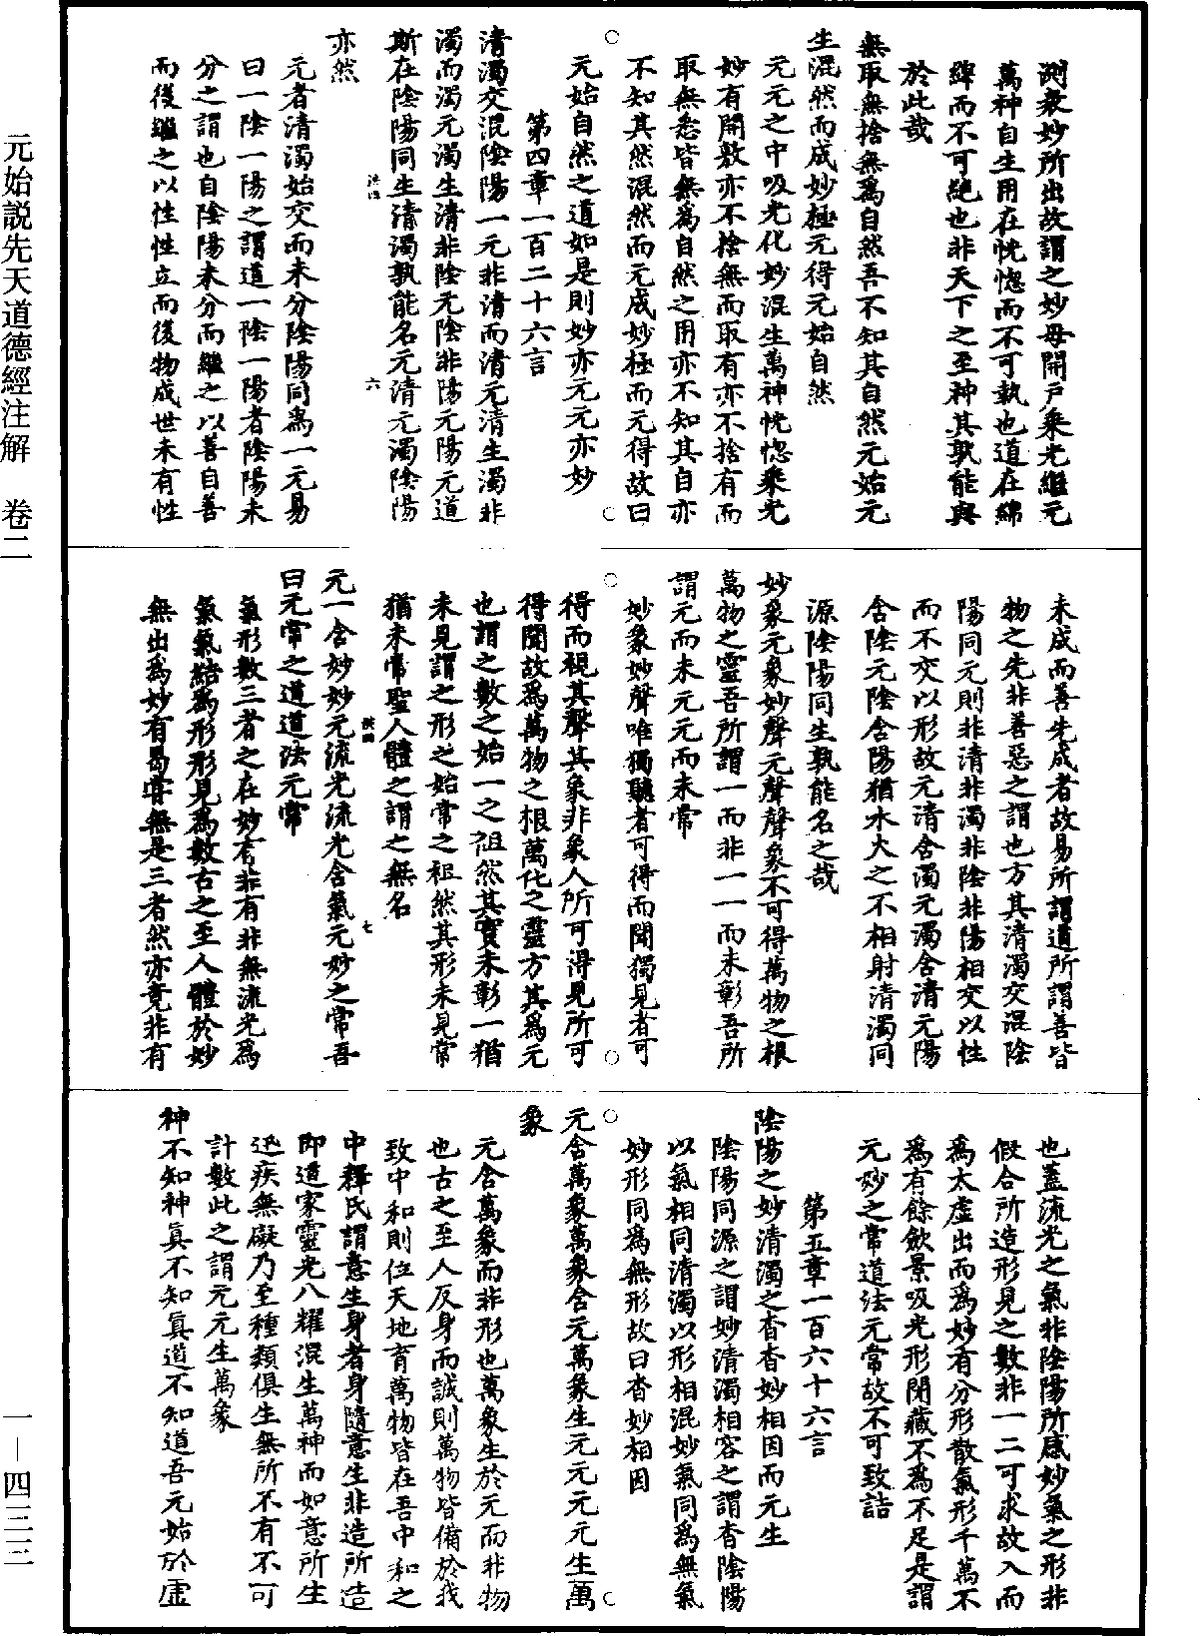 測衆妙所出故謂之妙母開戶乘光繼元
萬神自生用在恍惚而不可執也道在綿
綿而不可絶也非天下之至神其孰能與
於此哉
無取無捨無爲自然吾不知其自然元始元
生混然而成妙極元得元始自然
元元之中吸光化妙混生萬神恍惚乘光
妙有開敷亦不捨無而取有亦不捨有而
取無悉皆無爲自然之用亦不知其自亦
不知其然混然而元成妙極而元得故曰
元始自然之道如是則妙亦元元亦妙
第四章一百二十六言
清濁交混陰陽一元非清而清元清生濁非
濁而濁元濁生清非陰元陰非陽元陽元道
斯在陰陽同生清濁孰能名元清元濁陰陽
六
亦然
元者清濁始交而未分陰陽同爲一元易
曰一陰一陽之謂道一陰一陽者陰陽未
分之謂也自陰陽未分而繼之以善自善
而後繼之以性性立而後物成世未有性
未成而善先成者故易所謂道所謂善皆
物之先非善惡之謂也方其清濁交混陰
陽同元則非清非濁非陰非陽相交以性
而不交以形故元清含濁元濁含清元陽
含陰元陰含陽猶水火之不相射清濁同
源陰陽同生孰能名之哉
妙象元象妙聲元聲聲象不可得萬物之根
萬物之靈吾所謂一而非一一而未彰吾所
謂元而未元元而未常
妙象妙聲唯獨聽者可得而聞獨見者可
得而視其聲其象非象人所可得見所可
得聞故爲萬物之根萬化之靈方其爲元
也謂之數之始一之祖然其實未彰一猶
未見謂之形之始常之祖然其形未見常
猶未常聖人體之謂之無名
七
元一含妙妙元流光流光含氣元妙之常吾
曰元常之道道法元常
氣形數三者之在妙有非有非無流光爲
氣氣結爲形形見爲數古之至人體於妙
無出爲妙有曷嘗無是三者然亦竟非有
也蓋流光之氣非陰陽所感妙氣之形非
假合所造形見之數非一二可求故入而
爲太虛出而爲妙有分形散氣形千萬不
爲有餘斂景吸光形閉藏不爲不足是謂
元妙之常道法元常故不可致詰
第五章一百六十六言
陰陽之妙清濁之杳杳妙相因而元生
陰陽同源之謂妙清濁相容之謂杳陰陽
以氣相同清濁以形相混妙氣同爲無氣
妙形同爲無形故曰杳妙相因
元含萬象萬象含元萬象生元元元生萬
象
元含萬象而非形也萬象生於元而非物
也古之至人反身而誠則萬物皆備於我
致中和則位天地育萬物皆在吾中和之
中釋氏謂意生身者身隨意生非造所造
即道家靈光八耀混生萬神而如意所生
迅疾無礙乃至種類俱生無所不有不可
計數此之謂元元生萬象
神不知神真不知真道不知道吾元始於虛
元始説先天道德經注解　卷二
一—四三三